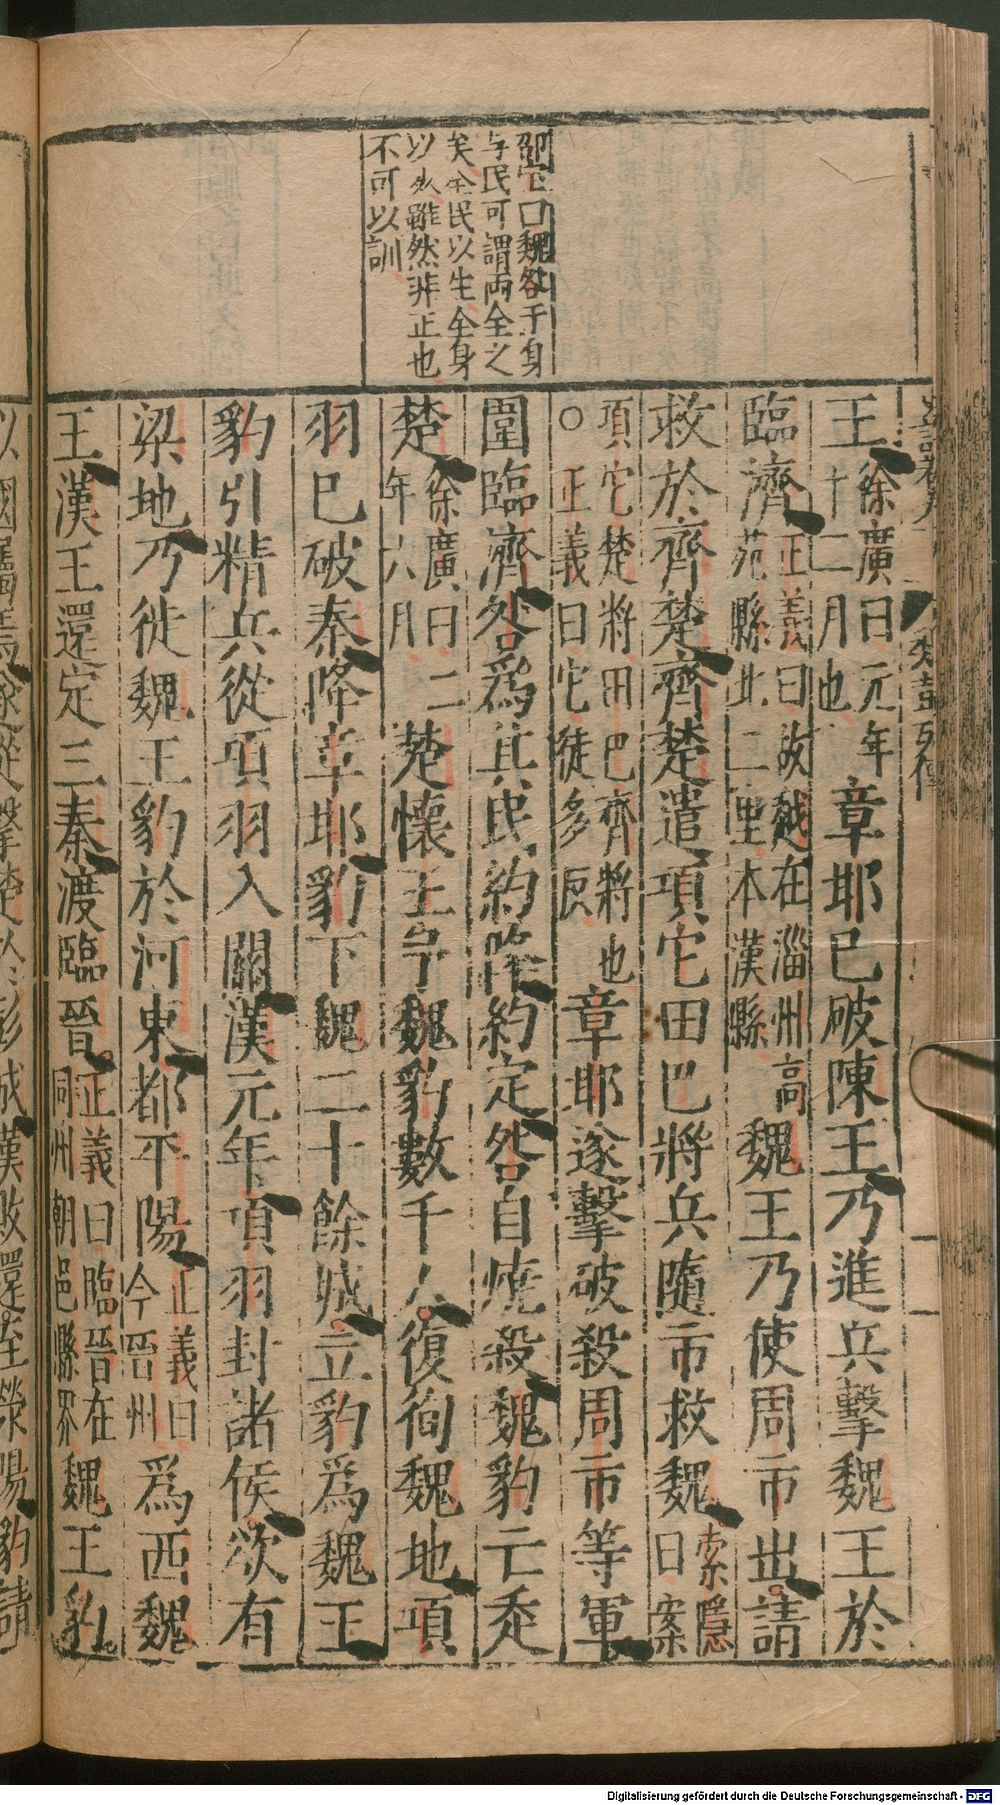 邵宅曰魏咎于身
与民可謂兩全之
矣全民以生全身
以死雖然非正也
不可以訓
王徐廣曰元年十二月也章邯已破陳王乃進兵擊魏王於
臨濟正義曰故越在淄州高苑縣北二里本漢縣魏王乃使周市出請
救於齊楚齊楚遣項它田巴將兵隨市救魏索隱曰案
項它楚將田巴齊將也○正義曰它徒多反章邯遂擊破殺周市等軍
圍臨濟咎爲其民約降約定咎自燒殺魏豹亡走
楚徐廣曰二年六月楚懷王予魏豹數千人復徇魏地項
羽已破秦降章邯豹下魏二十餘城立豹爲魏王
豹引精兵從項羽入關漢元年項羽封諸侯欲有
梁地乃徙魏王豹於河東都平陽正義曰今晉州爲西魏
王漢王還定三秦渡臨晉正義曰臨晉在同州朝邑縣界魏王豹
以國屬焉遂從擊楚於彭城漢敗還至滎陽豹請
Digitalisierung gefördert durch die Deutsche Forschungsgemeinschaft - DFG